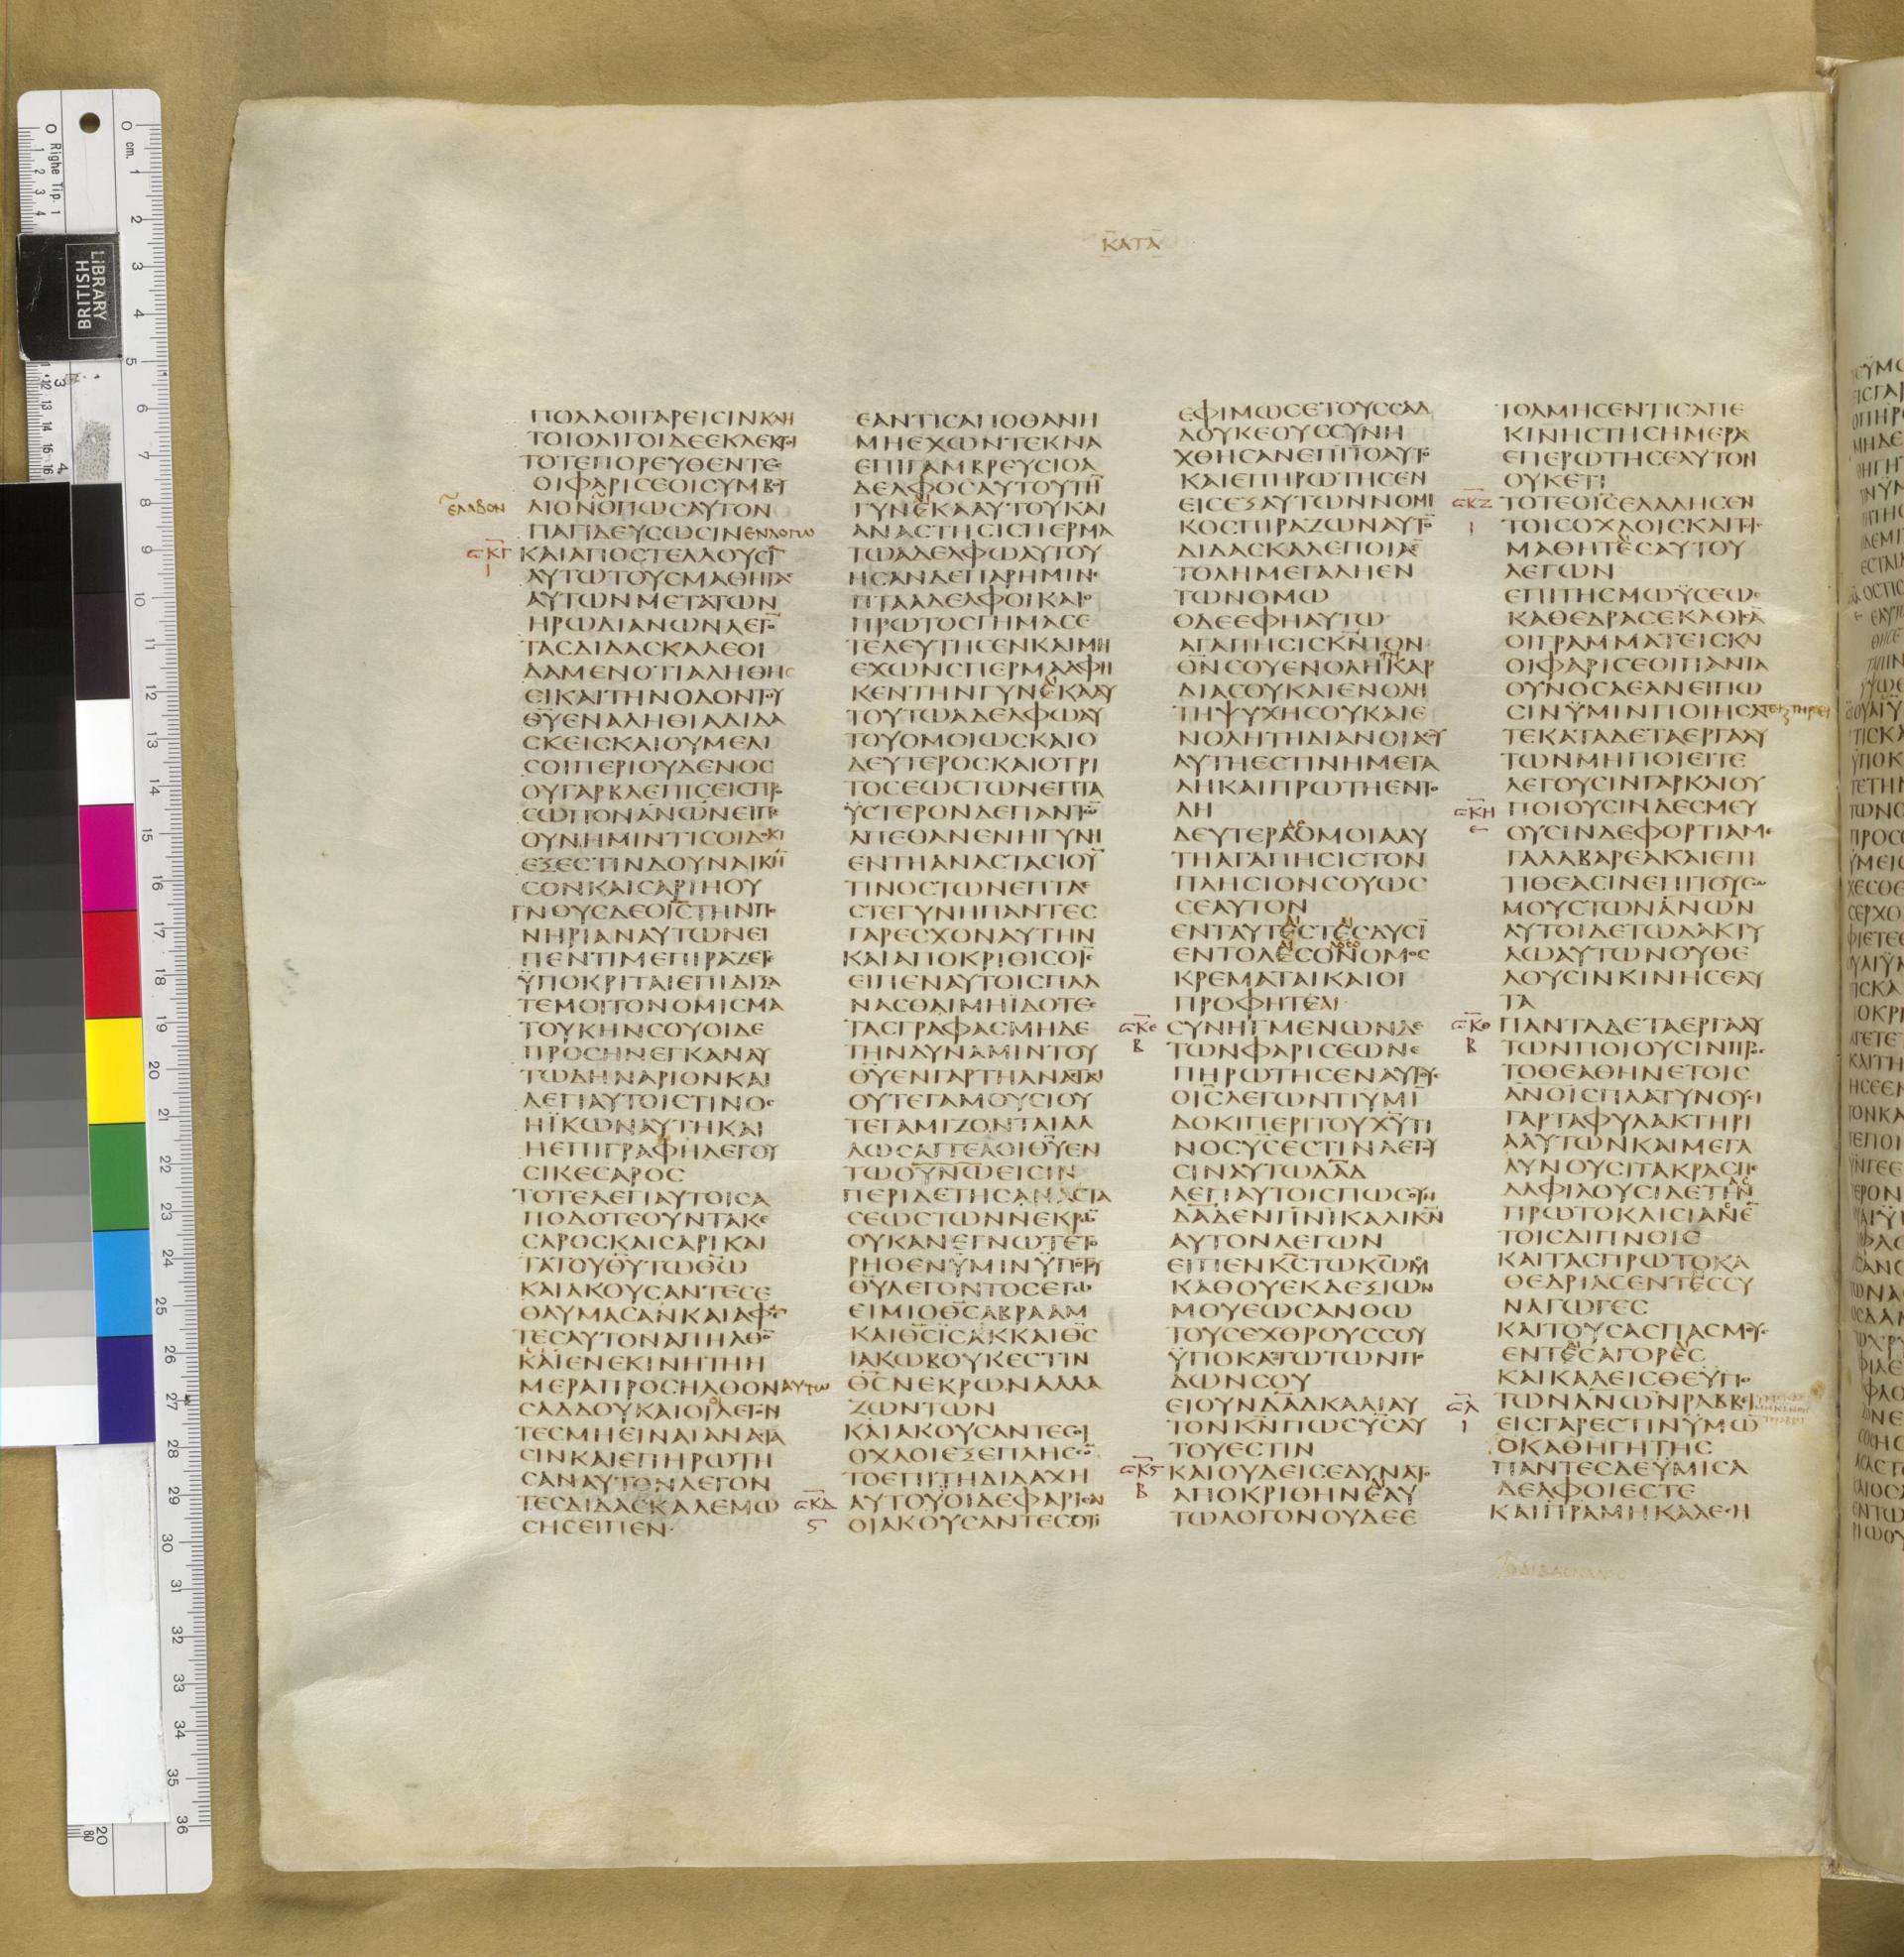 ΚΑΤΑ
ΠΟΛΛΟΙΓΑΡΕΙCΙΝΚΛΗ
ΤΟΙΟΛΙΓΟΙΔΕΕΚΛΕΚΤΟΙ
ΤΟΤΕΠΟΡΕΥΘΕΝΤΕC
ΟΙΦΑΡΙCΕΟΙCΥΜΒΟΥ
ΕΛΑΒΟΝ
ΛΙΟΝΟΠΩCΑΥΤΟΝ
ΠΑΓΙΔΕΥCΩCΙΝΕΝΛΟΓΩ
CΚΓ
Ι
ΚΑΙΑΠΟCΤΕΛΛΟΥCΙ̅
ΑΥΤΩΤΟΥCΜΑΘΗΤΑC
ΑΥΤΩΝΜΕΤΑΤΩΝ
ΗΡΩΔΙΑΝΩΝΛΕΓΟ̅
ΤΑCΔΙΔΑCΚΑΛΕΟΙ
ΔΑΜΕΝΟΤΙΑΛΗΘΗC
ΕΙΚΑΙΤΗΝΟΔΟΝΤΟΥ
Θ̅Υ̅ΕΝΑΛΗΘΙΑΔΙΔΑ
CΚΕΙCΚΑΙΟΥΜΕΛΙ
CΟΙΠΕΡΙΟΥΔΕΝΟC
ΟΥΓΑΡΒΛΕΠΙCΕΙCΠΡΟ
CΩΠΟΝΑΝ̅Ω̅Ν̅ΕΙΠΕ
ΟΥΝΗΜΙΝΤΙCΟΙΔΟΚΙ
ΕΞΕCΤΙΝΔΟΥΝΑΙΚΗ̅
CΟΝΚΑΙCΑΡΙΗΟΥ
ΓΝΟΥCΔΕΟΙ̅C̅ΤΗΝΠΟ
ΝΗΡΙΑΝΑΥΤΩΝΕΙ
ΠΕΝΤΙΜΕΠΙΡΑΖΕΤΕ
ΫΠΟΚΡΙΤΑΙΕΠΙΔΙΞΑ
ΤΕΜΟΙΤΟΝΟΜΙCΜΑ
ΤΟΥΚΗΝCΟΥΟΙΔΕ
ΠΡΟCΗΝΕΓΚΑΝΑΥ
ΤΩΔΗΝΑΡΙΟΝΚΑΙ
ΛΕΓΙΑΥΤΟΙCΤΙΝΟC
ΗΪΚΩΝΑΥΤΗΚΑΙ
ΗΕΠΙΓΡΑΦΗΛΕΓΟΥ
CΙΚΕCΑΡΟC
ΤΟΤΕΛΕΓΙΑΥΤΟΙCΑ
ΠΟΔΟΤΕΟΥΝΤΑΚΕ
CΑΡΟCΚΑΙCΑΡΙΚΑΙ
ΤΑΤΟΥΘ̅Υ̅ΤΩΘ̅Ω̅
ΚΑΙΑΚΟΥCΑΝΤΕCΕ
ΘΑΥΜΑCΑΝΚΑΙΑΦΕ̅
ΤΕCΑΥΤΟΝΑΠΗΛΘΟ̅
ΚΑΙΕΝΕΚΙΝΗΤΗΗ
ΜΕΡΑΠΡΟCΗΛΘΟΝΑΥΤΩ
CΑΔΔΟΥΚΑΙΟΙΟΙΛΕΓΟΝ
ΤΕCΜΗΕΙΝΑΙΑΝΑCΤΑ
CΙΝΚΑΙΕΠΗΡΩΤΗ
CΑΝΑΥΤΟΝΛΕΓΟΝ
ΤΕCΔΙΔΑCΚΑΛΕΜΩ
CΗCΕΙΠΕΝ
ΕΑΝΤΙCΑΠΟΘΑΝΗ
ΜΗΕΧΩΝΤΕΚΝΑ
ΕΠΙΓΑΜΒΡΕΥCΙΟΑ
ΔΕΛΦΟCΑΥΤΟΥΤΗ̅
ΓΥΝΕΚΑΑΥΤΟΥΚΑΙ
ΑΝΑCΤΗCΙCΠΕΡΜΑ
ΤΩΑΔΕΛΦΩΑΥΤΟΥ
ΗCΑΝΔΕΠΑΡΗΜΙΝ
ΠΤΑΑΔΕΛΦΟΙΚΑΙΟ
ΠΡΩΤΟCΓΗΜΑCΕ
ΤΕΛΕΥΤΗCΕΝΚΑΙΜΗ
ΕΧΩΝCΠΕΡΜΑΑΦΗ
ΚΕΝΤΗΝΓΥΝΕΚΑΑΥ
ΤΟΥΤΩΑΔΕΛΦΩΑΥ
ΤΟΥΟΜΟΙΩCΚΑΙΟ
ΔΕΥΤΕΡΟCΚΑΙΟΤΡΙ
ΤΟCΕΩCΤΩΝΕΠΤΑ
ΫCΤΕΡΟΝΔΕΠΑΝΤΩ̅
ΑΠΕΘΑΝΕΝΗΓΥΝΗ
ΕΝΤΗΑΝΑCΤΑCΙΟΥ̅
ΤΙΝΟCΤΩΝΕΠΤΑΕ
CΤΕΓΥΝΗΠΑΝΤΕC
ΓΑΡΕCΧΟΝΑΥΤΗΝ
ΚΑΙΑΠΟΚΡΙΘΙCΟΙ̅C̅
ΕΙΠΕΝΑΥΤΟΙCΠΛΑ
ΝΑCΘΑΙΜΗΪΔΟΤΕC
ΤΑCΓΡΑΦΑCΜΗΔΕ
ΤΗΝΔΥΝΑΜΙΝΤΟΥ
Θ̅Υ̅ΕΝΓΑΡΤΗΑΝΑCΤΑCΙ
ΟΥΤΕΓΑΜΟΥCΙΟΥ
ΤΕΓΑΜΙΖΟΝΤΑΙΑΛ
ΛΩCΑΓΓΕΛΟΙΘ̅Υ̅ΕΝ
ΤΩΟΥ̅Ν̅Ω̅ΕΙCΙΝ
ΠΕΡΙΔΕΤΗCΑΝΑCΤΑ
CΕΩCΤΩΝΝΕΚΡΩ̅
ΟΥΚΑΝΕΓΝΩΤΕΤΟ
ΡΗΘΕΝΫΜΙΝΫΠΟΤΟΥ
Θ̅Υ̅ΛΕΓΟΝΤΟCΕΓΩ
ΕΙΜΙΟΘ̅C̅ΑΒΡΑΑΜ
ΚΑΙΘ̅C̅ΪCΑΚΚΑΙΘ̅C̅
ΙΑΚΩΒΟΥΚΕCΤΙΝ
Θ̅C̅ΝΕΚΡΩΝΑΛΛΑ
ΖΩΝΤΩΝ
ΚΑΙΑΚΟΥCΑΝΤΕCΟΙ
ΟΧΛΟΙΕΞΕΠΛΗCCΟ̅
ΤΟΕΠΙΤΗΔΙΔΑΧΗ
CΚΔ
Ϛ
ΑΥΤΟΥΟΙΔΕΦΑΡΙCΑΙ
ΟΙΑΚΟΥCΑΝΤΕCΟΤΙ
ΕΦΙΜΩCΕΤΟΥCCΑΔ
ΔΟΥΚΕΟΥCCΥΝΗ
ΧΘΗCΑΝΕΠΙΤΟΑΥΤΟ
ΚΑΙΕΠΗΡΩΤΗCΕΝ
ΕΙCΕΞΑΥΤΩΝΝΟΜΙ
ΚΟCΠΙΡΑΖΩΝΑΥΤΟ̅
ΔΙΔΑCΚΑΛΕΠΟΙΑΕ̅
ΤΟΛΗΜΕΓΑΛΗΕΝ
ΤΩΝΟΜΩ
ΟΔΕΕΦΗΑΥΤΩ
ΑΓΑΠΗCΙCΚ̅Ν̅ΤΟΝ
Θ̅Ν̅CΟΥΕΝΟΛΗΤΗΚΑΡ
ΔΙΑCΟΥΚΑΙΕΝΟΛΗ
ΤΗΨΥΧΗCΟΥΚΑΙΕ
ΝΟΛΗΤΗΔΙΑΝΟΙΑCΟΥ
ΑΥΤΗΕCΤΙΝΗΜΕΓΑ
ΛΗΚΑΙΠΡΩΤΗΕΝΤΟ
ΛΗ
ΔΕΥΤΕΡΑΔΕΟΜΟΙΑΑΥ
ΤΗΑΓΑΠΗCΙCΤΟΝ
ΠΛΗCΙΟΝCΟΥΩC
CΕΑΥΤΟΝ
ΕΝΤΑΥΤΕCΤΕCΔΥCΙ̅
ΕΝΤΟΛΕCΟΝΟΜΟC
ΚΡΕΜΑΤΑΙΚΑΙΟΙ
ΠΡΟΦΗΤΕΑΙ
CΚΕ
Β
CΥΝΗΓΜΕΝΩΝΔΕ
ΤΩΝΦΑΡΙCΕΩΝΕ
ΠΗΡΩΤΗCΕΝΑΥΤΟΥC
ΟΙ̅C̅ΛΕΓΩΝΤΙΥΜΙ̅
ΔΟΚΙΠΕΡΙΤΟΥΧ̅Υ̅ΤΙ
ΝΟCΥ̅C̅ΕCΤΙΝΛΕΓΟΥ
CΙΝΑΥΤΩΔ̅Α̅Δ̅
ΛΕΓΙΑΥΤΟΙCΠΩCΟΥΝ
Δ̅Α̅Δ̅ΕΝΠ̅Ν̅Ι̅ΚΑΛΙΚ̅Ν̅
ΑΥΤΟΝΛΕΓΩΝ
ΕΙΠΕΝΚ̅C̅ΤΩΚ̅Ω̅ΜΟΥ
ΚΑΘΟΥΕΚΔΕΞΙΩΝ
ΜΟΥΕΩCΑΝΘΩ
ΤΟΥCΕΧΘΡΟΥCCΟΥ
ΫΠΟΚΑΤΩΤΩΝΠΟ
ΔΩΝCΟΥ
ΕΙΟΥΝΔ̅Α̅Δ̅ΚΑΛΙΑΥ
ΤΟΝΚ̅Ν̅ΠΩCΥ̅C̅ΑΥ
ΤΟΥΕCΤΙΝ
CΚϚ
Β
ΚΑΙΟΥΔΕΙCΕΔΥΝΑΤΟ
ΑΠΟΚΡΙΘΗΝΕΑΥ
ΤΩΛΟΓΟΝΟΥΔΕΕ
ΤΟΛΜΗCΕΝΤΙCΑΠΕ
ΚΙΝΗCΤΗCΗΜΕΡΑ
ΕΠΕΡΩΤΗCΕΑΥΤΟΝ
ΟΥΚΕΤΙ
CΚΖ
Ι
ΤΟΤΕΟΙ̅C̅ΕΛΑΛΗCΕΝ
ΤΟΙCΟΧΛΟΙCΚΑΙΤΟΙC
ΜΑΘΗΤΕCΑΥΤΟΥ
ΛΕΓΩΝ
ΕΠΙΤΗCΜΩΫCΕΩC
ΚΑΘΕΔΡΑCΕΚΑΘΙCΑ̅
ΟΙΓΡΑΜΜΑΤΕΙCΚΑΙ
ΟΙΦΑΡΙCΕΟΙΠΑΝΤΑ
ΟΥΝΟCΑΕΑΝΕΙΠΩ
CΙΝΫΜΙΝΠΟΙΗCΑΤΕ
ΤΕΚΑΤΑΔΕΤΑΕΡΓΑΑΥ
ΤΩΝΜΗΠΟΙΕΙΤΕ
ΛΕΓΟΥCΙΝΓΑΡΚΑΙΟΥ
CΚΗ
Ε
ΠΟΙΟΥCΙΝΔΕCΜΕΥ
ΟΥCΙΝΔΕΦΟΡΤΙΑΜΕ
ΓΑΛΑΒΑΡΕΑΚΑΙΕΠΙ
ΤΙΘΕΑCΙΝΕΠΙΤΟΥCΩ
ΜΟΥCΤΩΝΑΝ̅Ω̅Ν̅
ΑΥΤΟΙΔΕΤΩΔΑΚΤΥ
ΛΩΑΥΤΩΝΟΥΘΕ
ΛΟΥCΙΝΚΙΝΗCΕΑΥ
ΤΑ
CΚΘ
Β
ΠΑΝΤΑΔΕΤΑΕΡΓΑΑΥ
ΤΩΝΠΟΙΟΥCΙΝΠΡΟC
ΤΟΘΕΑΘΗΝΕΤΟΙC
ΑΝΟΙCΠΛΑΤΥΝΟΥCΙ
ΓΑΡΤΑΦΥΛΑΚΤΗΡΙ
ΑΑΥΤΩΝΚΑΙΜΕΓΑ
ΛΥΝΟΥCΙΤΑΚΡΑCΠΕ
ΔΑΦΙΛΟΥCΙΔΕΤΗΝ
ΠΡΩΤΟΚΛΙCΙΑΝΕ̅
ΤΟΙCΔΙΠΝΟΙC
ΚΑΙΤΑCΠΡΩΤΟΚΑ
ΘΕΔΡΙΑCΕΝΤΕCCΥ
ΝΑΓΩΓΕC
ΚΑΙΤΟΥCΑCΠΑCΜΟΥC
ΕΝΤΕCΑΓΟΡΕC
ΚΑΙΚΑΛΕΙCΘΕΫΠΟ
CΛ
Ι
ΤΩΝΑΝ̅Ω̅Ν̅ΡΑΒΒΕΙ
ΕΙCΓΑΡΕCΤΙΝΫΜΩ̅
ΟΚΑΘΗΓΗΤΗC
ΠΑΝΤΕCΔΕΫΜΙCΑ
ΔΕΛΦΟΙΕCΤΕ
ΚΑΙΠΡΑΜΗΚΑΛΕCΗ
ΟΔΙΔΑCΚΑΛΟC
BRITISH
LIBRARY